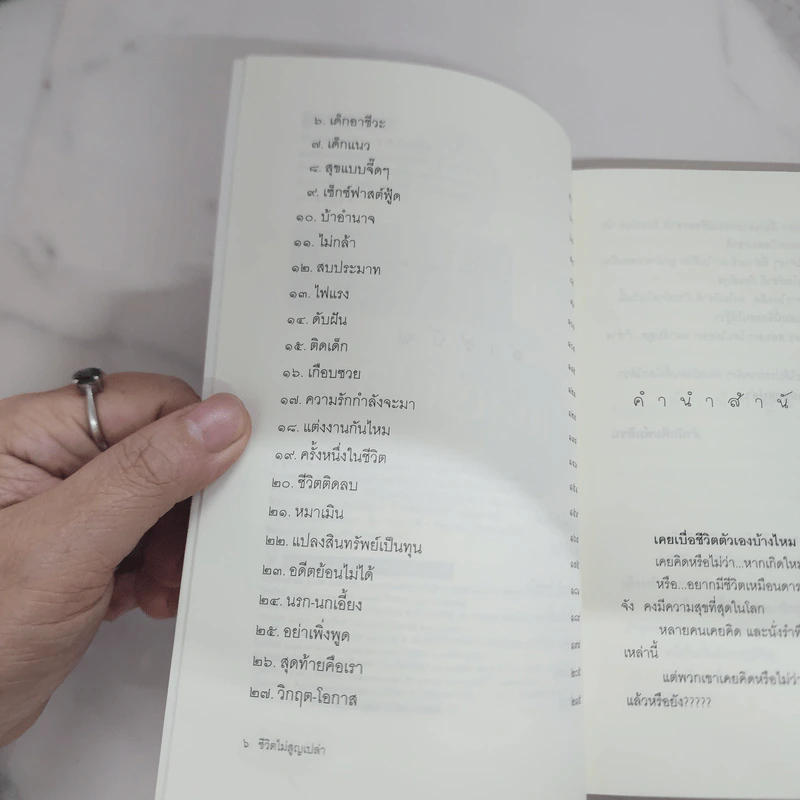 ๖. เด็กอาชีวะ
๗. เด็กแนว
๘. สุขแบบจี๊ดๆ
๙. เซ็กซ์ฟาสต์ฟู้ด
๑๐. บ้าอำนาจ
๑๑. ไม่กล้า
๑๒. สบประมาท
๑๓. ไฟแรง
๑๔. ดับฝัน
๑๕. ติดเด็ก
๑๖. เกือบซวย
๑๗. ความรักกำลังจะมา
๑๘. แต่งงานกันไหม
๑๙. ครั้งหนึ่งในชีวิต
๒๐. ชีวิตติดลบ
๒๑. หมาเมิน
๒๒. แปลงสินทรัพย์เป็นทุน
๒๓. อดีตย้อนไม่ได้
๒๔. นรก-นกเอี้ยง
๒๕. อย่าเพิ่งพูด
๒๖. สุดท้ายคือเรา
๒๗. วิกฤต-โอกาส
๖ ชีวิตไม่สูญเปล่า
คำนำสำนั
เคยเบื่อชีวิตตัวเองบ้างไหม
เคยคิดหรือไม่ว่า...หากเกิดใหม
หรือ...อยากมีชีวิตเหมือนดาร
จัง คงมีความสุขที่สุดในโลก
หลายคนเคยคิด และนั่งรำพึ
เหล่านี้
แต่พวกเขาเคยคิดหรือไม่ว่า
แล้วหรือยัง?????